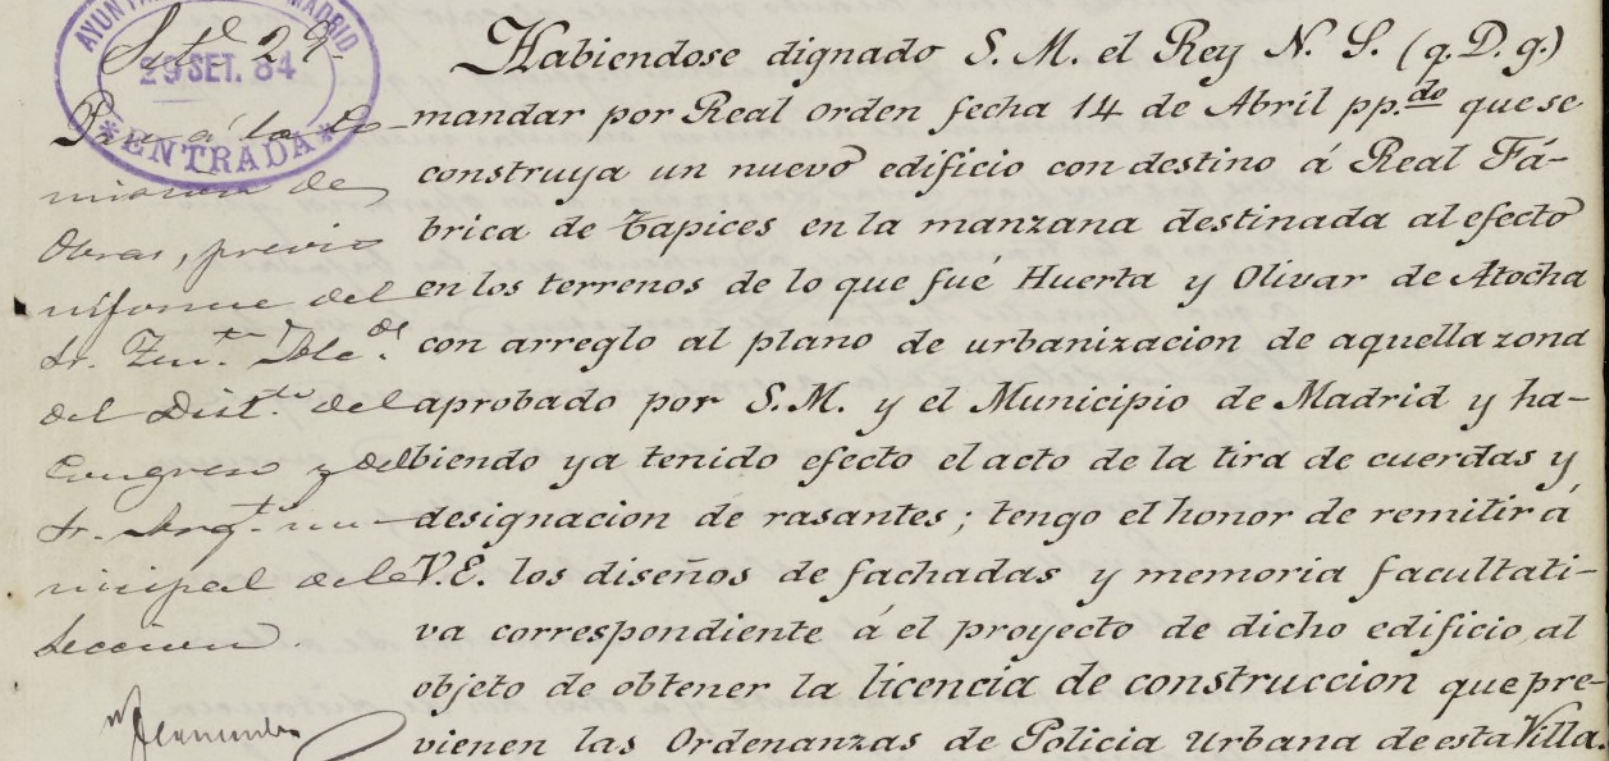 AYUNTA MADRID
29 SET. 84
*ENTRADA*
Set.e 29.
Pase á la Co-
mision de
Obras, previo
informe del
Sr. Ten.te Alc.de
del Dist.to del
Congreso y del
Sr. Arq.to mu-
nicipal de la
Seccion.
Habiendose dignado S. M. el Rey N. S. (q. D. g.)
mandar por Real orden fecha 14 de Abril pp.do que se
construya un nuevo edificio con destino á Real Fá-
brica de Tapices en la manzana destinada al efecto
en los terrenos de lo que fué Huerta y Olivar de Atocha
con arreglo al plano de urbanizacion de aquella zona
aprobado por S. M. y el Municipio de Madrid y ha-
biendo ya tenido efecto el acto de la tira de cuerdas y
designacion de rasantes; tengo el honor de remitir á
V. E. los diseños de fachadas y memoria facultati-
va correspondiente á el proyecto de dicho edificio, al
objeto de obtener la licencia de construccion que pre-
vienen las Ordenanzas de Policia Urbana de esta Villa.